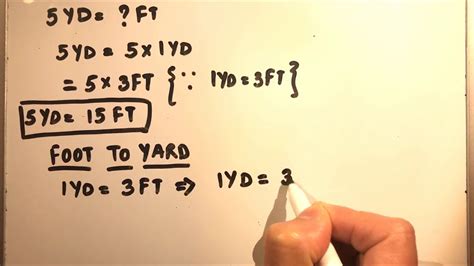 5YD = ? FT
5YD = 5 × 1YD
= 5 × 3FT {∵ 1YD = 3FT}
5YD = 15 FT
FOOT TO YARD
1YD = 3FT ⇒ 1YD = 3